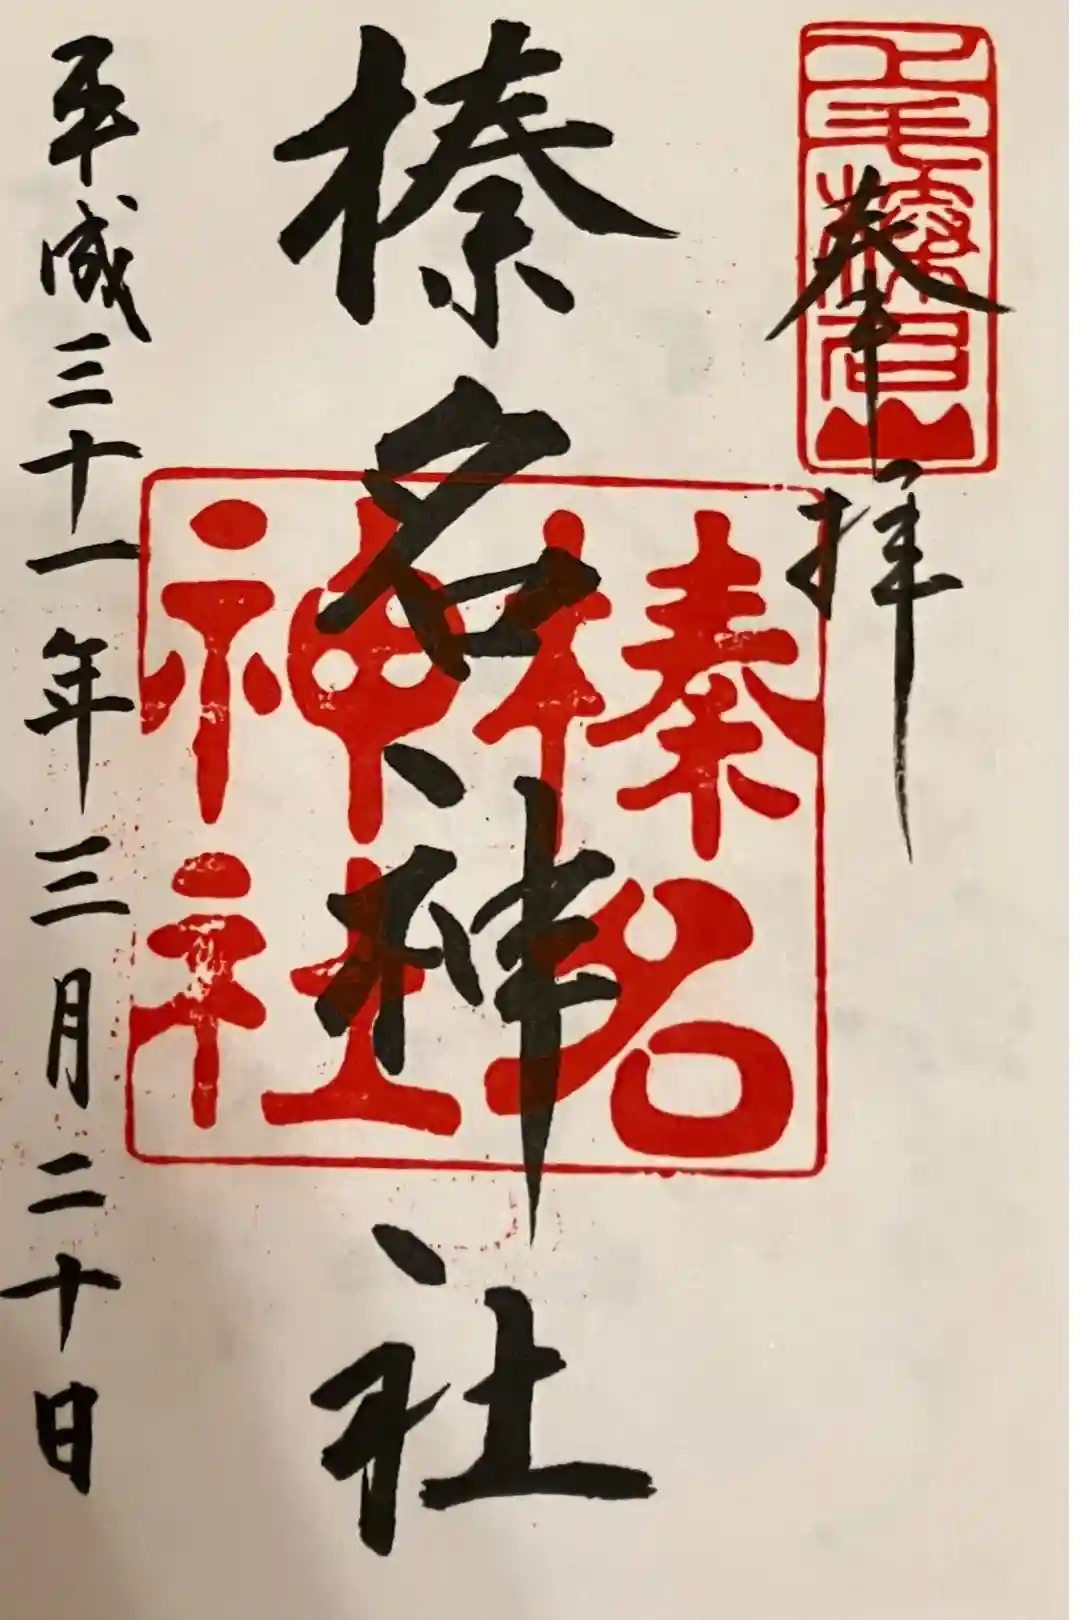 奉拝
上毛榛名山
榛名神社
榛名
神社
平成三十一年三月二十日